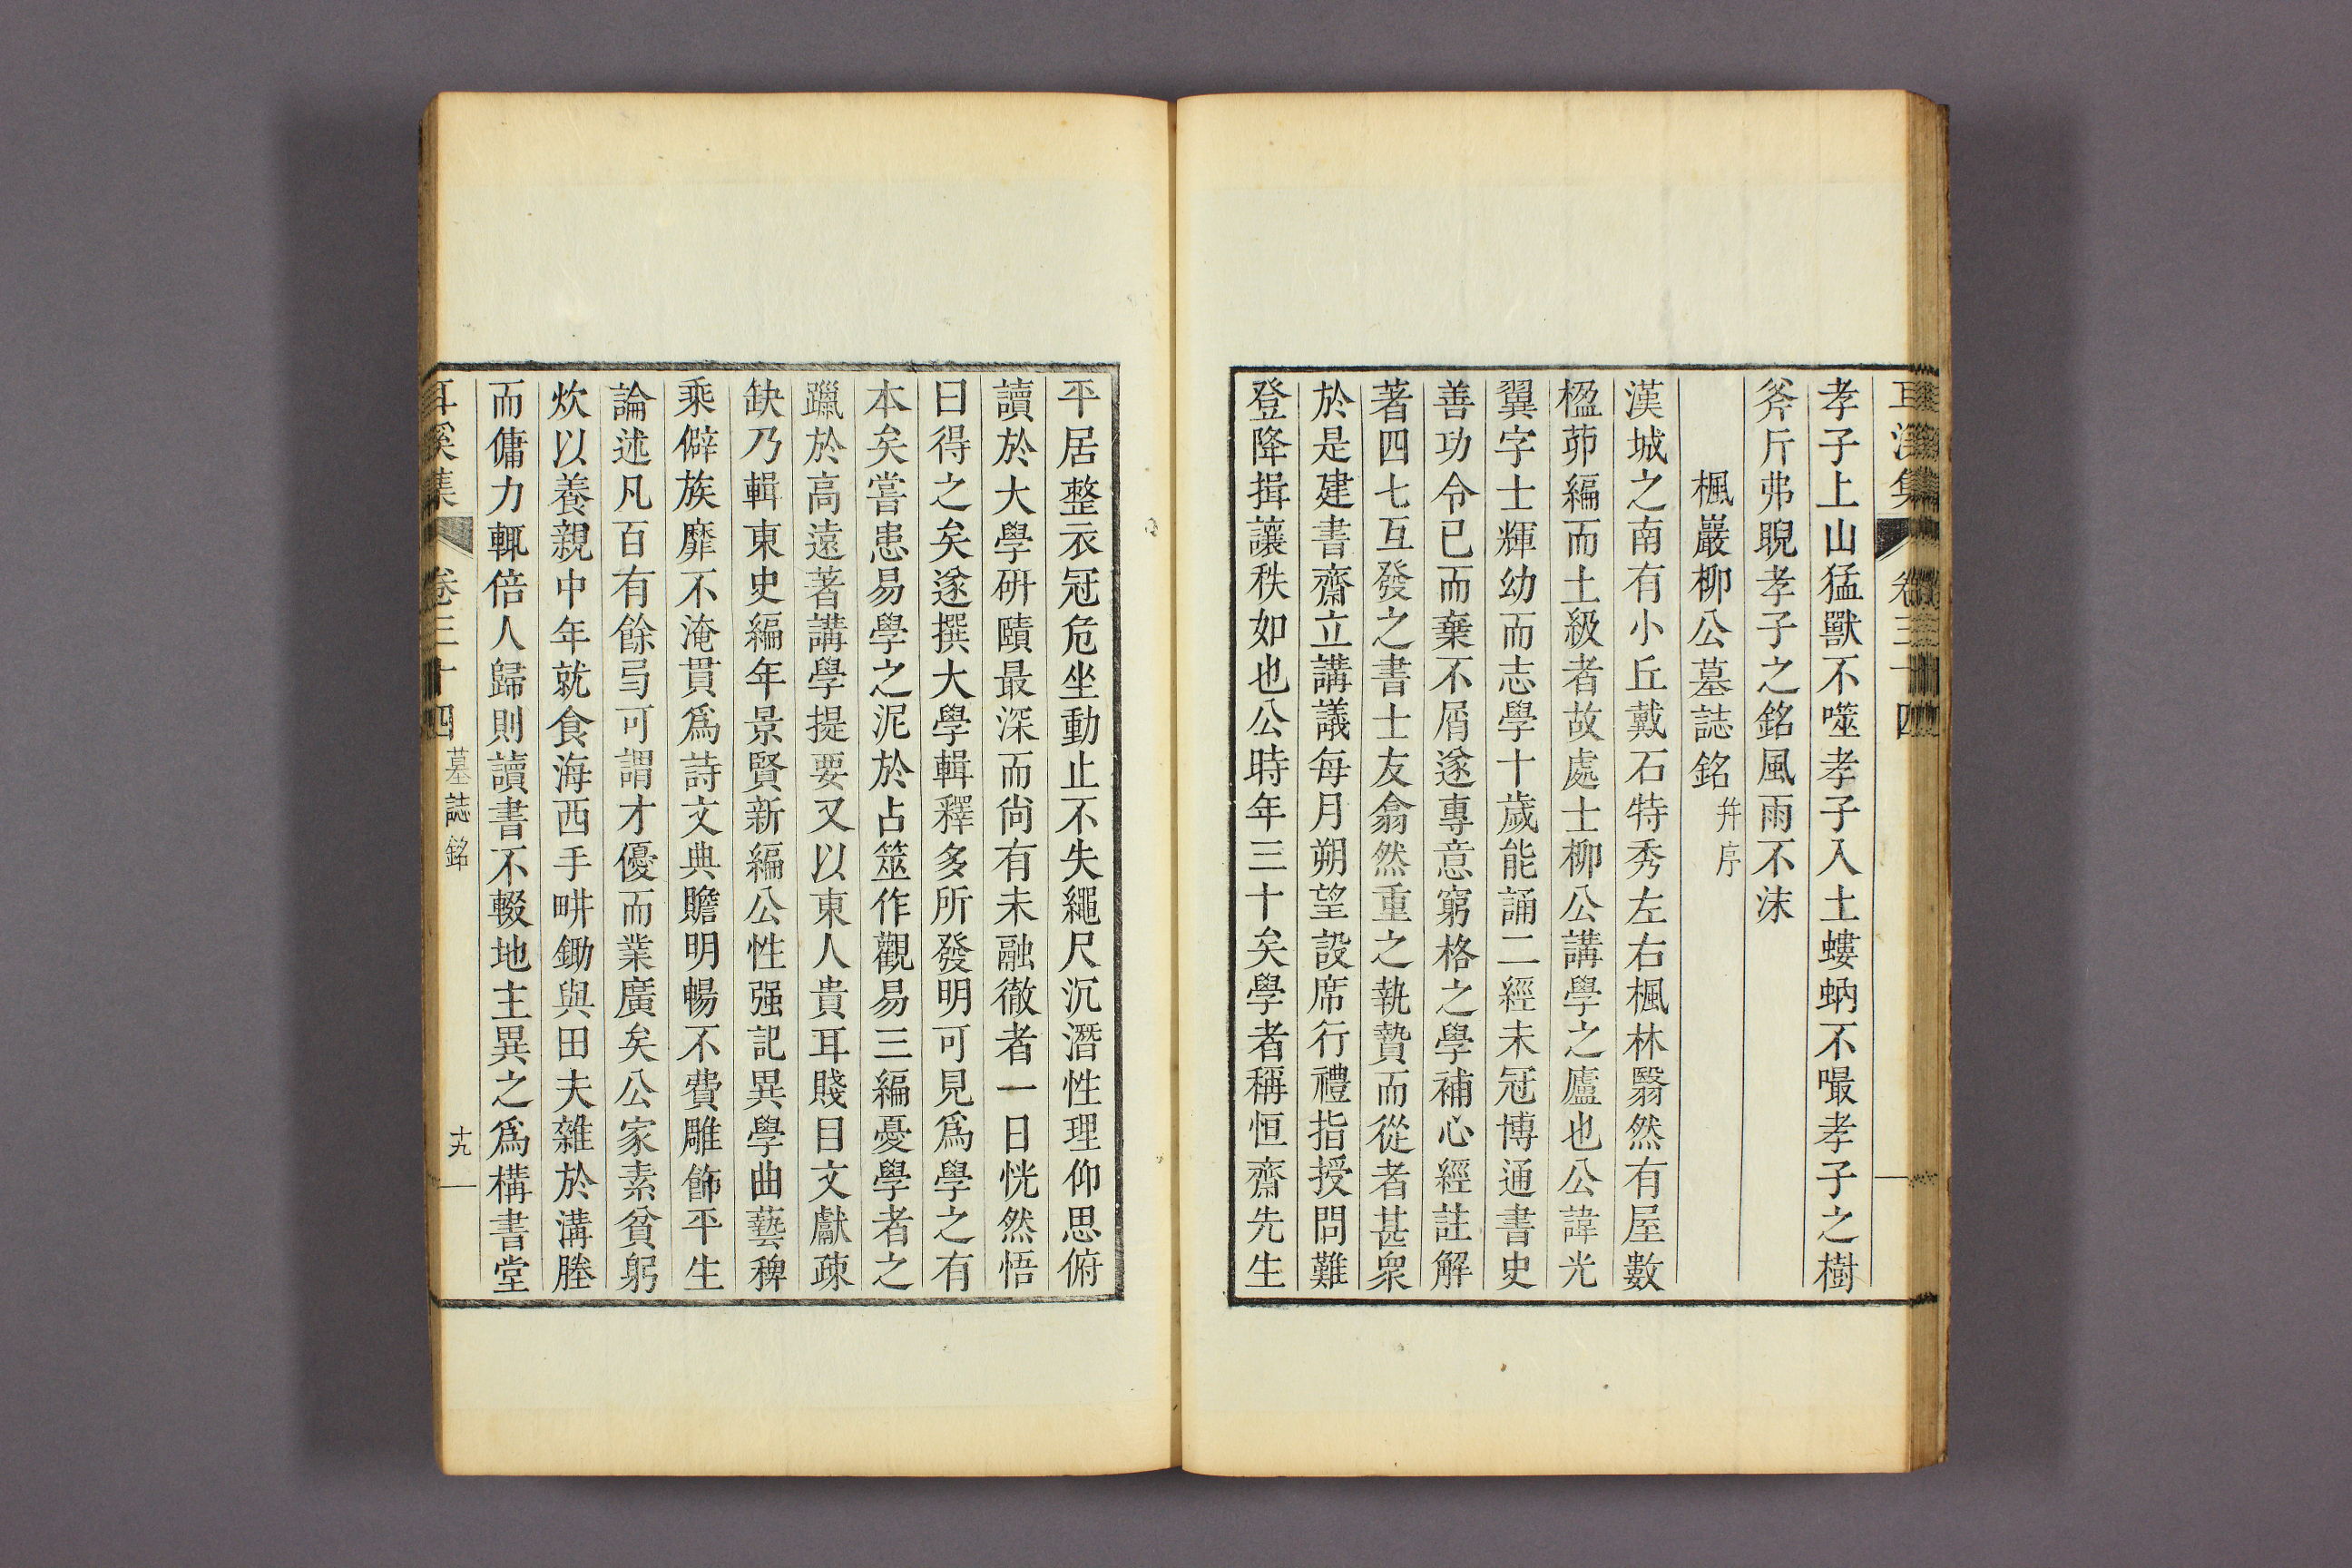 耳溪集 卷三十四
孝子上山猛獸不噬孝子入土螻蚋不嘬孝子之樹
斧斤弗睨孝子之銘風雨不沫
楓巖柳公墓誌銘 幷序
漢城之南有小丘戴石特秀左右楓林翳然有屋數
楹茆編而土級者故處士柳公講學之廬也公諱光
翼字士輝幼而志學十歲能誦二經未冠博通書史
善功令已而棄不屑遂專意窮格之學補心經註解
著四七互發之書士友翕然重之執贄而從者甚衆
於是建書齋立講議每月朔望設席行禮指授問難
登降揖讓秩如也公時年三十矣學者稱恒齋先生
平居整衣冠危坐動止不失繩尺沉潛性理仰思俯
讀於大學硏賾最深而尙有未融徹者一日恍然悟
曰得之矣遂撰大學輯釋多所發明可見爲學之有
本矣嘗患易學之泥於占筮作觀易三編憂學者之
躐於高遠著講學提要又以東人貴耳賤目文獻疎
缺乃輯東史編年景賢新編公性强記異學曲藝稗
乘僻族靡不淹貫爲詩文典贍明暢不費雕飾平生
論述凡百有餘弓可謂才優而業廣矣公家素貧躬
炊以養親中年就食海西手畊鋤與田夫雜於溝塍
而傭力輒倍人歸則讀書不輟地主異之爲構書堂
耳溪集 卷三十四 墓誌銘 十九